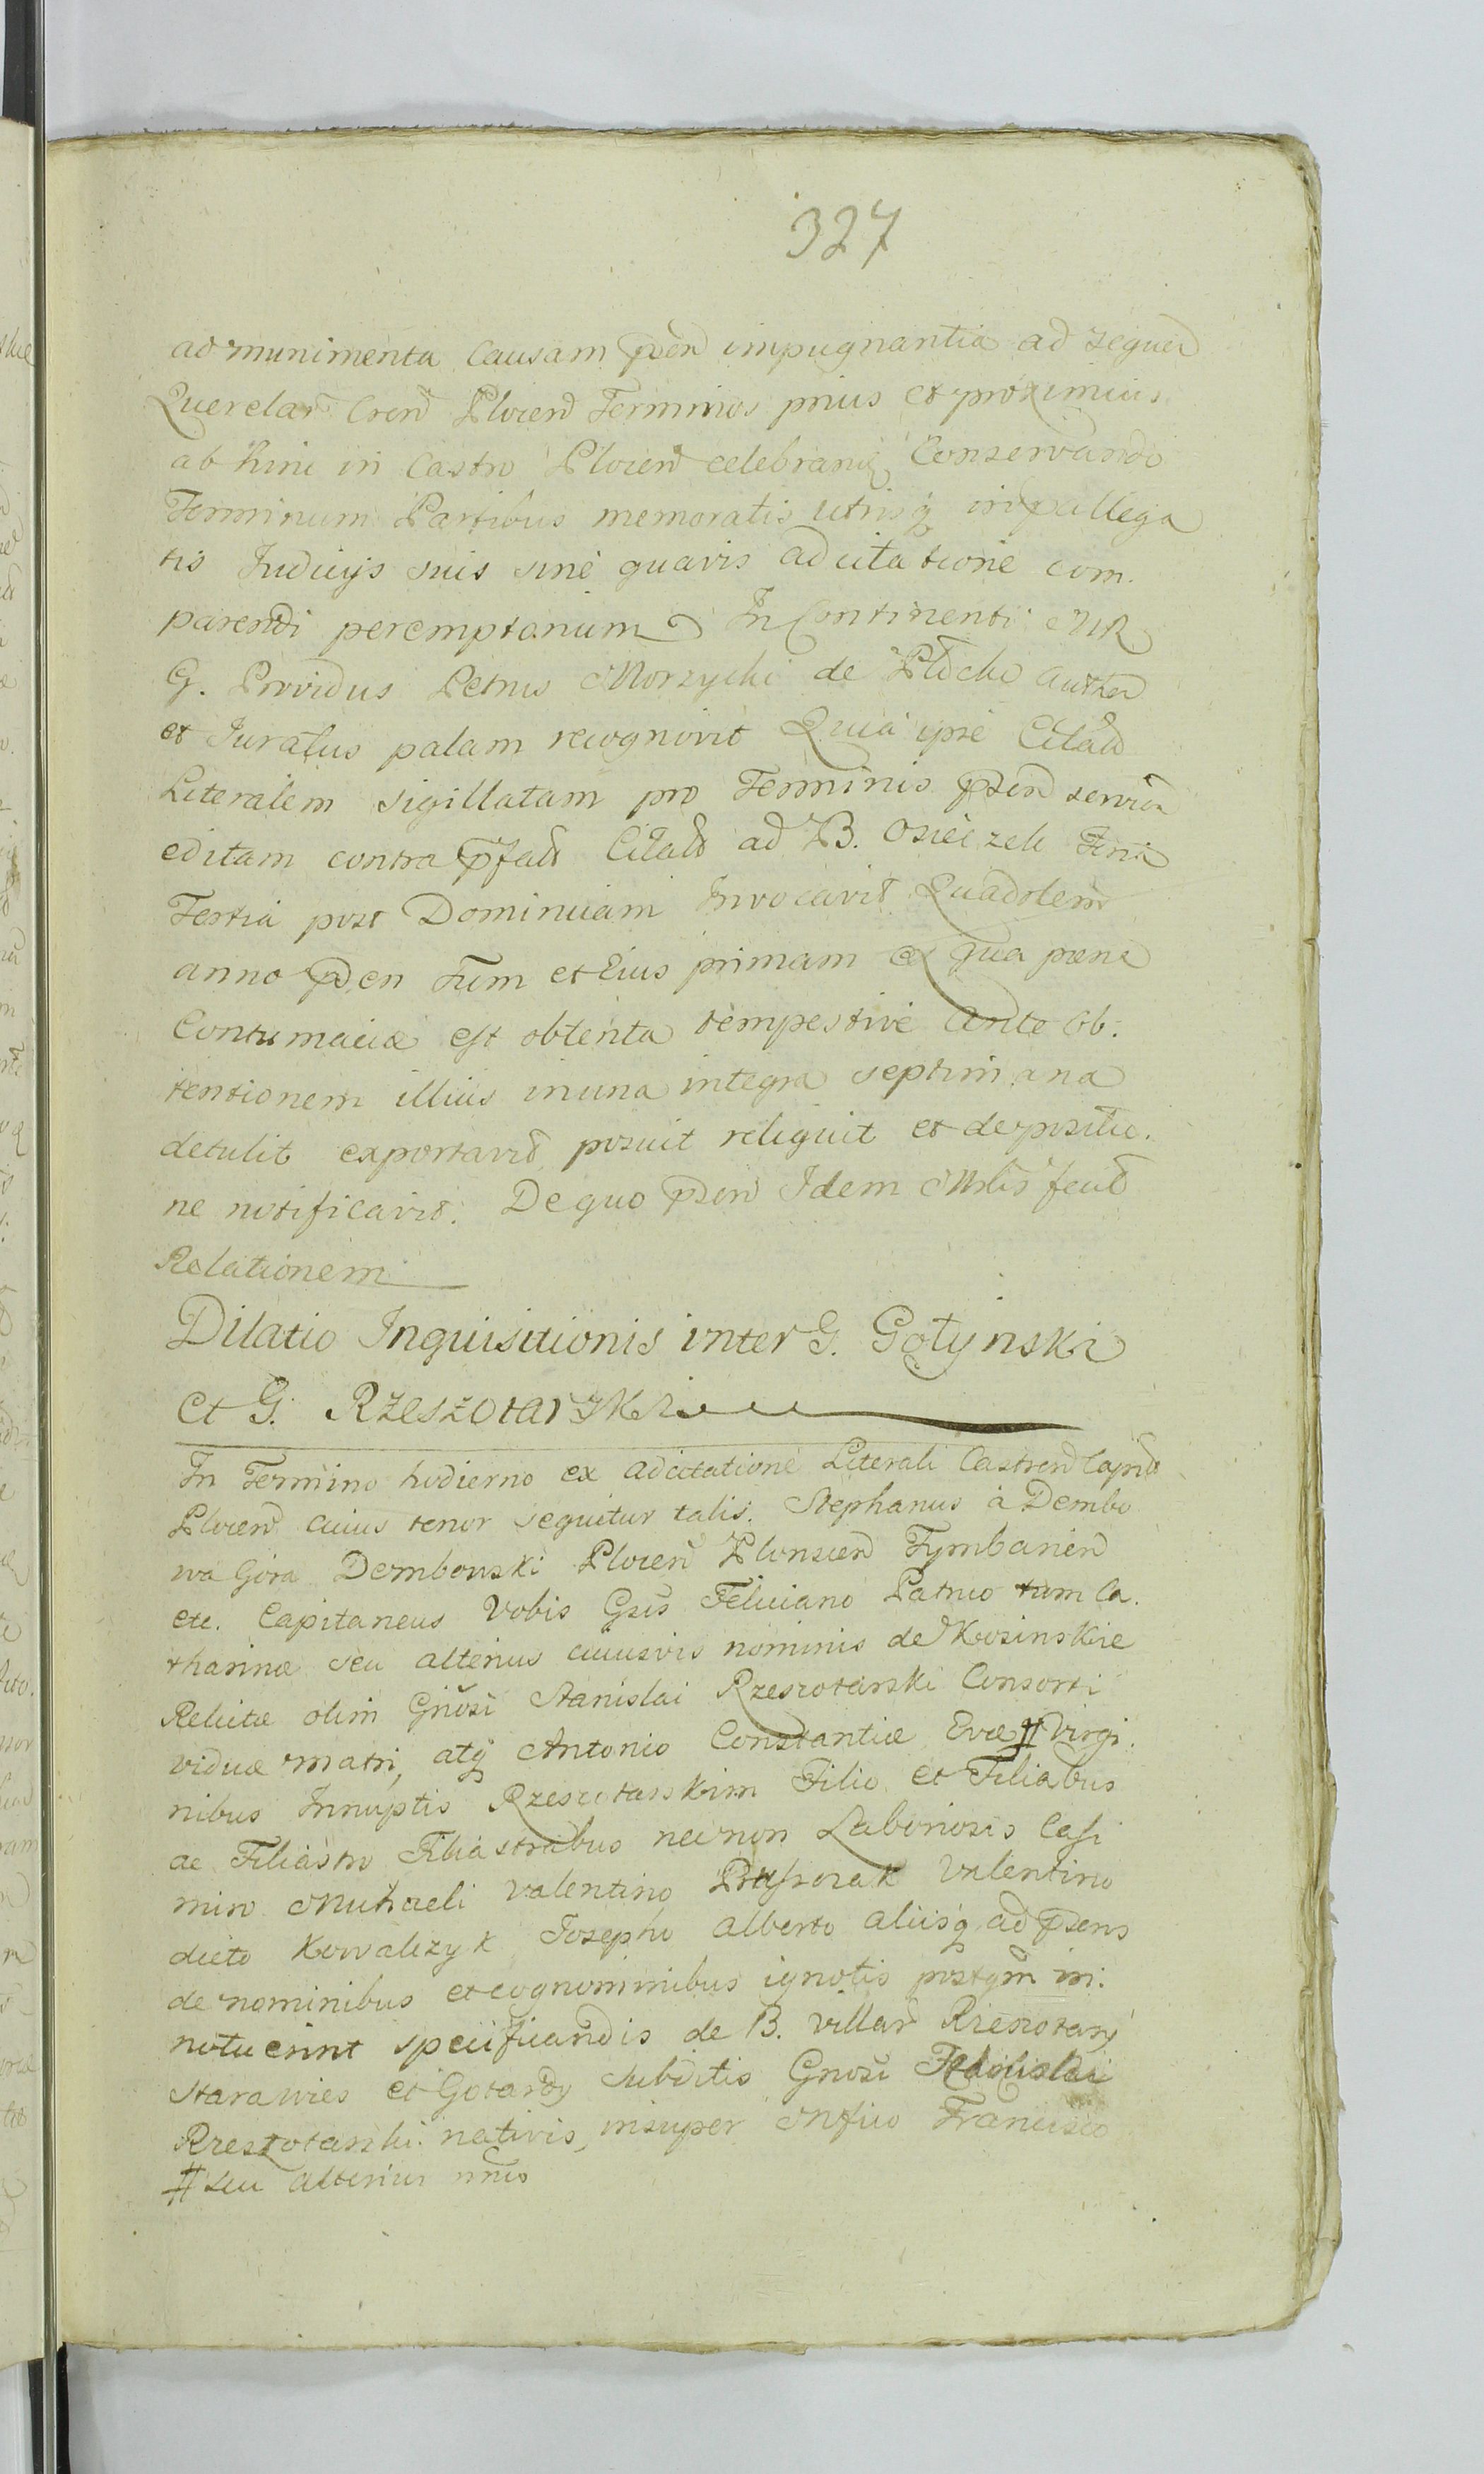 327
ad munimenta Causam p̄sen impugnantia ad sequen
Querelar Cren Plocen Terminos prius et proximius
ab hinc in Castro Plocen celebranq Conservando
Terminum Partibus memoratis utrisq
tis Judicijs suis sine quavis adcitatione com.
parendi peremptorium In Continenti MR
G. Providus Petrus Morzycki de Plocko auther
et Juratus palam recognovit Quia ipse Citaõ
Literalem sigillatam pro Terminis p̄sen servien
editam contra p̄fat Citatõ ad B. Osieczek Feria
Tertia post Dominicam Invocavit Quadrlem
anno p̄sen Tum et Eius primam ex qua pæna
Contumaciæ est obtenta tempestive Ante Ob.
tentionem illius in una integra septimana
detulit exportavit posuit reliquit et depositio.
ne notificavit. De quo p̄sen Idem Mrlis fecit
Relationem
Dilatio Inquisitionis inter G. Gołyński
et G. Rzeszotarski
In Termino hodierno ex Adcitatione Literali Castren Capnli
Plocen cuius tenor sequitur talis. Stephanus à Dembo
wa Gora Dembowski Plocen Plonscen Tymbarien
etc. Capitaneus Vobis Gsis Feliciano Patruo tum Ca.
tharinæ seu alterius cuiusvis nominis de Kosinskie
Relictæ olim Gnosi Stanislai Rzeszotarski Consorti
viduæ matri, atq Antonio Constantiæ Evæ # Virgi.
nibus Innuptis Rzeszotarskim Filio et Filiabus
ac Filiastro Filiastrabus necnon Laboriosis Casi
miro Michaeli Valentino Valentino
dicto Kowalczyk Josepho Alberto aliisq ad p̄sens
de nominibus et cognominibus ignotis postqm in:
notuerint specificandis de B. villar Rzeszotary
Starawies et Gotardy Subditis Gnosi Stanislai
Rzeszotarski nativis, insuper Mfico Francisco
# seu alterius nnis